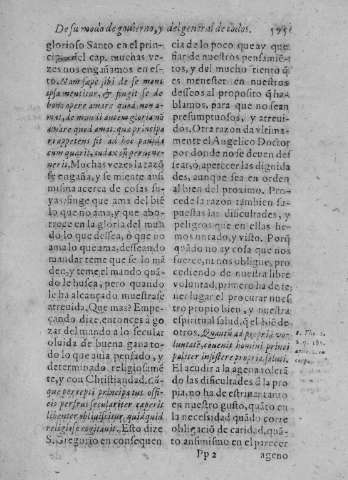 De su modo de gouierno, y del general de todos.
glorioso Santo en el prin-
cipio del cap. muchas ve-
zes nos engañamos en es-
to. Nam sæpe sibi de se mens
ipsa mentitur, & fingit se de
bono opere amare quod non a-
mat, de mundi autem gloria nõ
amare quod amat. que principa
ri appetens fit ad hoc pauida
cum quærit, audax cũ peruene-
nerit. Muchas vezes la razõ
se engaña, y se miente assi
misma acerca de cosas su-
yas, finge que ama del biẽ
lo que no ama, y que abo-
rrece en la gloria del mun
do lo que dessea, ò que no
ama lo que ama, desseando
mandar teme que se lo mã
den, y teme el mando quã-
do le busca, pero quando
le ha alcançado muestrase
atreuida. Que mas? Empe-
çando dize, entonces a go
zar del mando a lo secular
oluida de buena gana to-
do lo que auia pensado, y
determinado religiosamẽ
te, y con Christiandad. Cũ-
que percepti principatus offi-
cio perfrui seculariter cæperit
libenter obliuiscitur quidquid
religiose cogitauit. Esto dize
S. Gregorio en consequen
cia de lo poco que ay que
fiar de nuestros pensamiẽ-
tos, y del mucho tiento q̃
es menester en nuestros
desseos al proposito q̃ ha
blamos, para que no sean
presumptuosos, y atreui-
dos. Otra razon da vltima-
mente el Angelico Doctor
por donde no se deuen des
sear, o apetecer las dignida
des, aunque sea en orden
al bien del proximo. Pro-
cede la razon tambien su-
puestas las dificultades, y
peligros que en ellas he-
mos notado, y visto. Porq̃
quãdo no ay cosa que nos
fuerce, ni nos obligue, pro
cediendo de nuestra libre
voluntad, primero ha de te-
ner lugar el procurar nues-
tro propio bien, y nuestra
espiritual salud, q̃ el biẽ de
otros. Quantũ ad propriã vo-
luntatẽ, conuenit homini princi
paliter insistere propriæ saluti.
El acudir a la agena tolerã
do las dificultades ã la pro
pia, no ha de estriuar tanto
en nuestro gusto, quãto en
la necessidad quãdo corre
obligaciõ de caridad, quã-
to ansimismo en el parecer
Pp 2
ageno